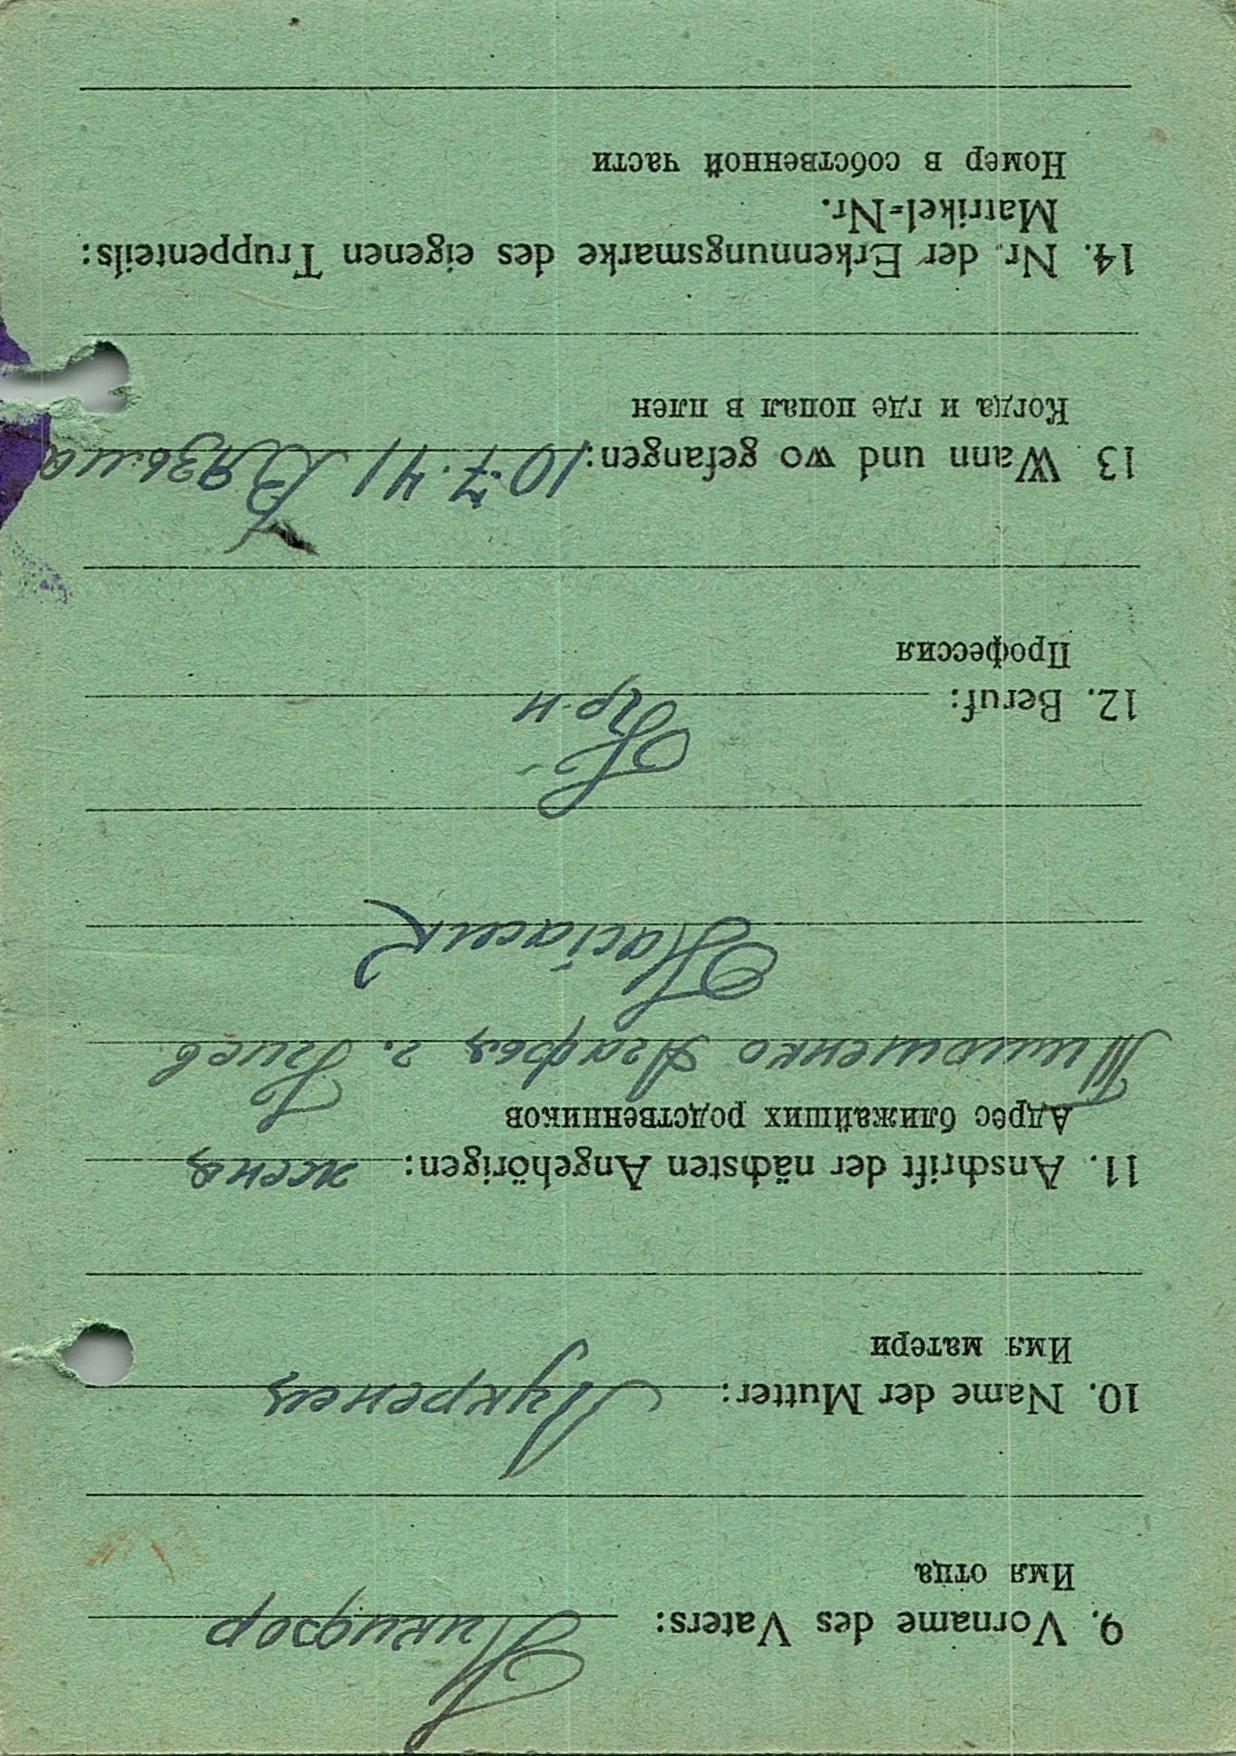 9. Vorname des Vaters: Никифор
Имя отца
10. Name der Mutter:
Имя матери
11. Anschrift der nächsten Angehörigen: жена
Адрес ближайших родственников
Тимошенко Агафья г. Киев
12. Beruf:
Профессия
13 Wann und wo gefangen: 10.7.41 Вязьма
Когда и где попал в плен
14. Nr. der Erkennungsmarke des eigenen Truppenteils:
Matrikel=Nr.
Номер в собственной части